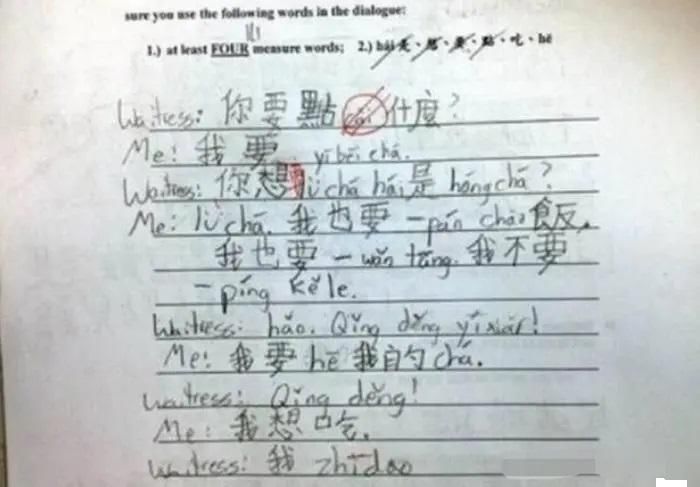 sure you use the following words in the dialogue:
1.) at least FOUR measure words; 2.) hái 是、想、要、點、吃、hē
Waitress: 你要點 cài 什麼?
Me: 我要 yī bēi chá.
Waitress: 你想要 lǜ chá hái 是 hóng chá?
Me: lǜ chá. 我也要一 pán chǎo 飯.
我也要一 wǎn tāng. 我不要
一 píng kě lè.
Waitress: hǎo. Qǐng děng yí xiàr!
Me: 我要 hē 我的 chá.
Waitress: Qǐng děng!
Me: 我想吃.
Waitress: 我 zhīdao